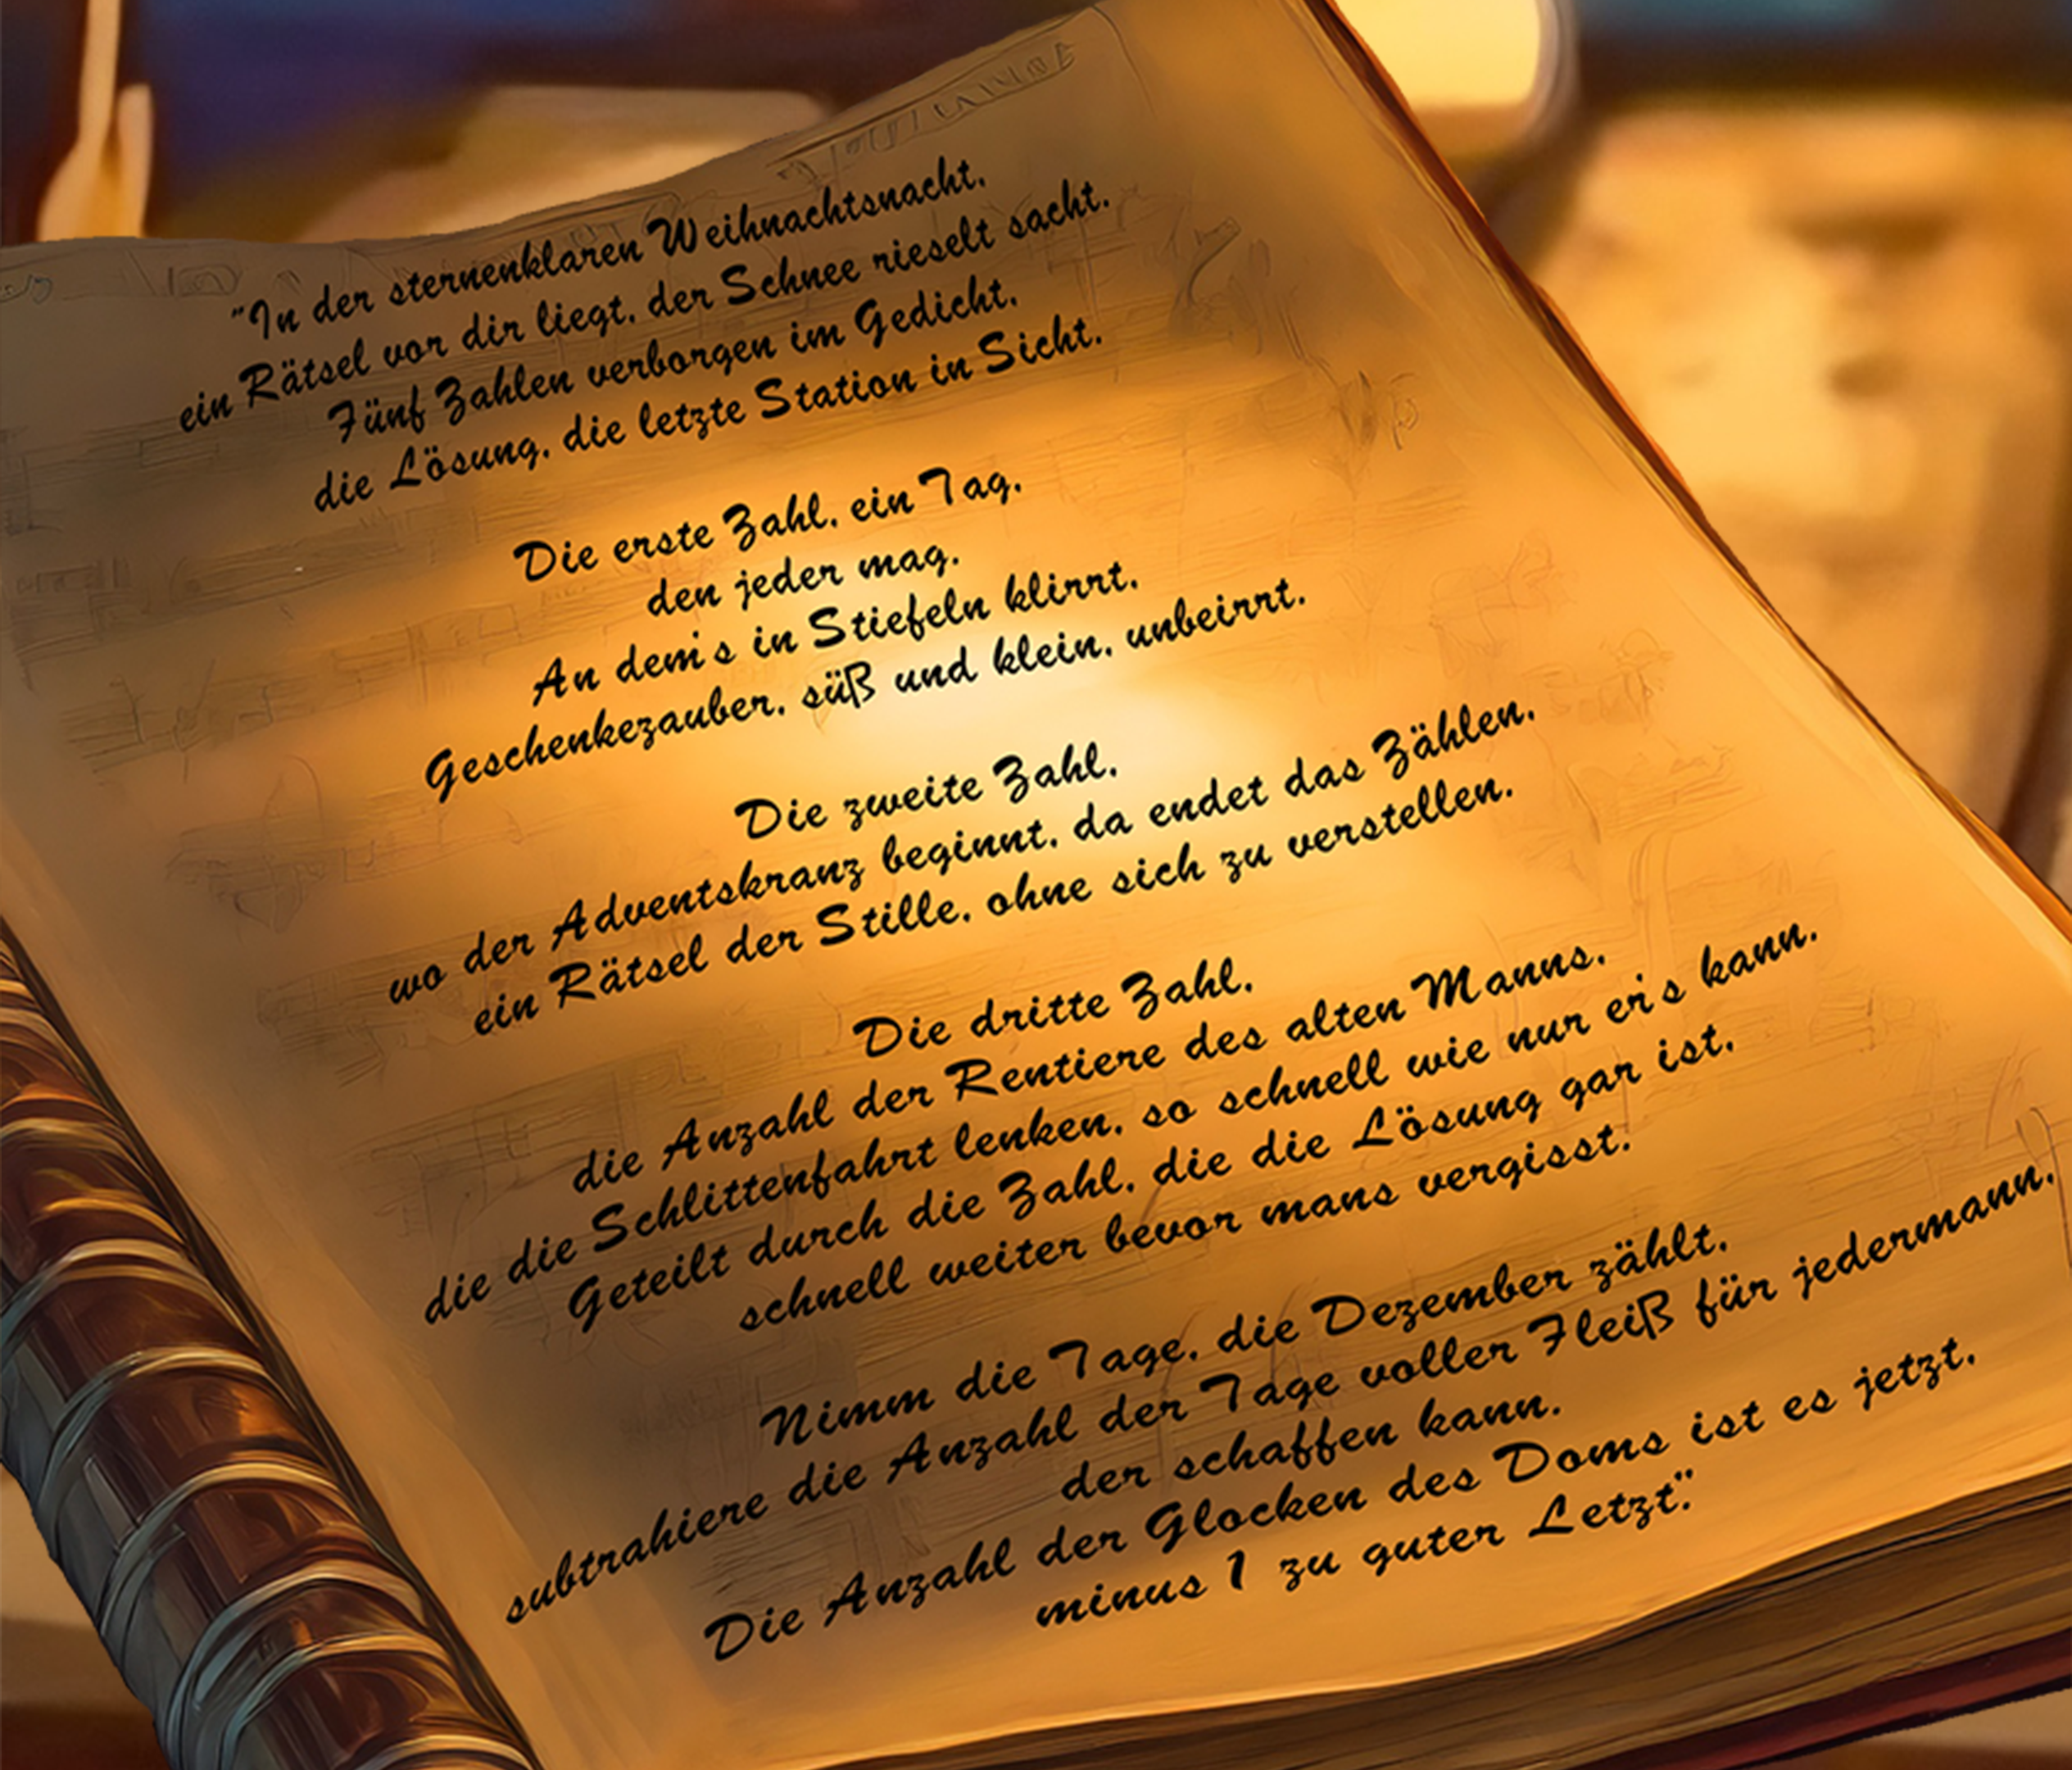 "In der sternenklaren Weihnachtsnacht,
ein Rätsel vor dir liegt, der Schnee rieselt sacht.
Fünf Zahlen verborgen im Gedicht,
die Lösung, die letzte Station in Sicht.
Die erste Zahl, ein Tag,
den jeder mag.
An dem's in Stiefeln klirrt,
Geschenkezauber, süß und klein, unbeirrt.
Die zweite Zahl,
wo der Adventskranz beginnt, da endet das Zählen,
ein Rätsel der Stille, ohne sich zu verstellen.
Die dritte Zahl,
die Anzahl der Rentiere des alten Manns,
die die Schlittenfahrt lenken, so schnell wie nur er's kann.
Geteilt durch die Zahl, die die Lösung gar ist,
schnell weiter bevor mans vergisst.
Nimm die Tage, die Dezember zählt,
subtrahiere die Anzahl der Tage voller Fleiß für jedermann,
der schaffen kann.
Die Anzahl der Glocken des Doms ist es jetzt,
minus 1 zu guter Letzt".